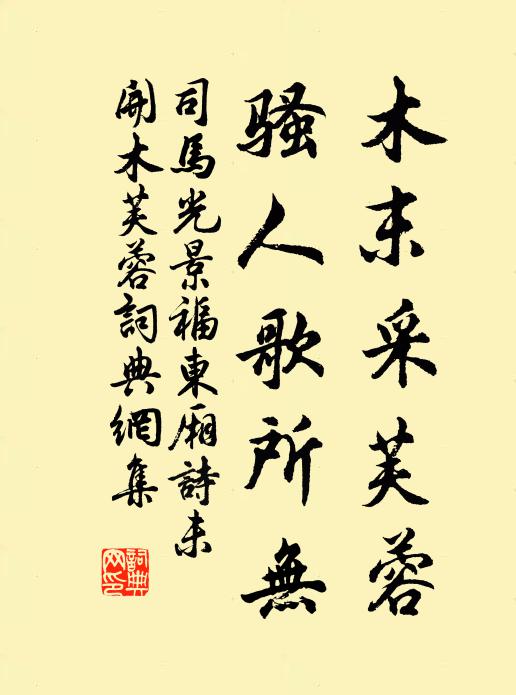 木末采芙蓉
骚人歌所無
司馬光景福東廂詩未
開木芙蓉詞典網集
詞典
网印